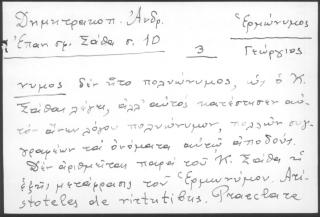 Δημητρακοπ. Ἀνδρ.
Ἑρμώνυμος
Ἐπαν. Σάθα σ. 10
3
Γεώργιος
νυμος δὲν ἦτο πολυώνυμος, ὡς ὁ Κ.
Σάθας λέγει, ἀλλ' αὐτὸς κατέστησεν αὐ-
τὸν ἄνευ λόγου πολυώνυμον, πολλῶν συγ-
γραφέων τὰ ὀνόματα αὐτῷ ἀποδούς.
Δὲν ἀριθμεῖται παρὰ τοῦ Κ. Σάθα ἡ
ἑξῆς μετάφρασις τοῦ Ἑρμωνύμου. Ari-
stoteles de virtutibus. Praeclare